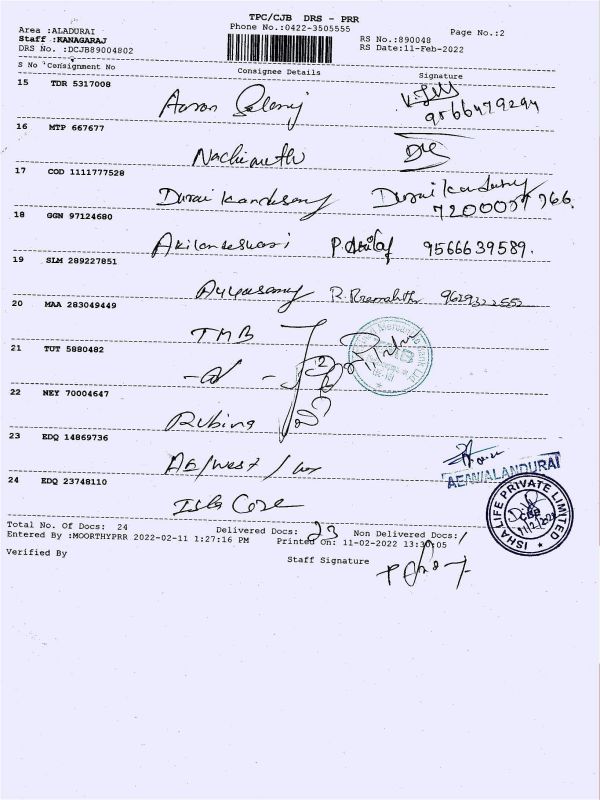 TPC/CJB DRS - PRR
Phone No.:0422-3505555
Page No.:2
Area :ALADURAI
Staff :KANAGARAJ
DRS No. :DCJB89004802
RS No.:890048
RS Date:11-Feb-2022
S No Consignment No Consignee Details Signature
15 TDR 5317008 Aaron
16 MTP 667677 Nachimuthu
17 COD 1111777528 Durai kandasamy Durai kandasamy
18 GGN 97124680 Akilandeswari 9566639589.
19 SLM 289227851 Ayyasamy
20 MAA 283049449 TMB
21 TUT 5880482
22 NEY 70004647 Rubing
23 EDQ 14869736 AE/West
AE/W/ALANDURAI
24 EDQ 23748110 Isha Core
ISHA LIFE PRIVATE LIMITED
CBB
11/2/2022
Total No. Of Docs: 24 Delivered Docs: 23 Non Delivered Docs:1
Entered By :MOORTHYPRR 2022-02-11 1:27:16 PM Printed On: 11-02-2022 13:30:05
Verified By Staff Signature